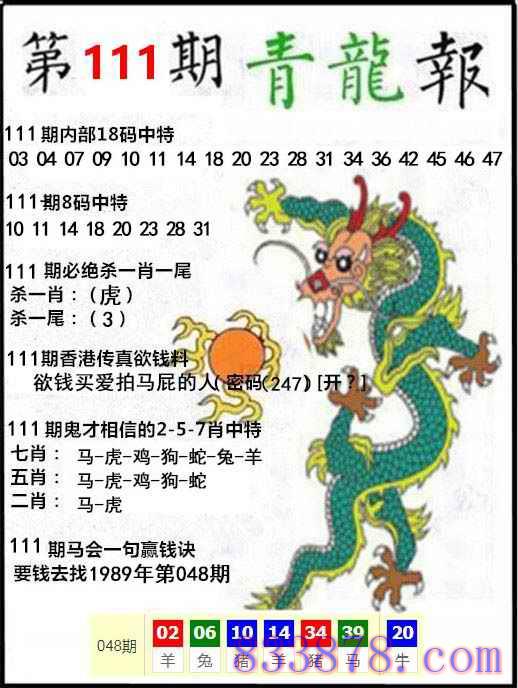 第111期青龍報
111期内部18码中特
03 04 07 09 10 11 14 18 20 23 28 31 34 36 42 45 46 47
111期8码中特
10 11 14 18 20 23 28 31
111期必绝杀一肖一尾
杀一肖：（虎）
杀一尾：（3）
111期香港传真欲钱料
欲钱买爱拍马屁的人(密码(247)[开?]
111期鬼才相信的2-5-7肖中特
七肖： 马-虎-鸡-狗-蛇-兔-羊
五肖： 马-虎-鸡-狗-蛇
二肖： 马-虎
111期马会一句赢钱诀
要钱去找1989年第048期
048期 02 06 10 14 34 39 20
羊 兔 猪 羊 猪 马 牛
833878.com